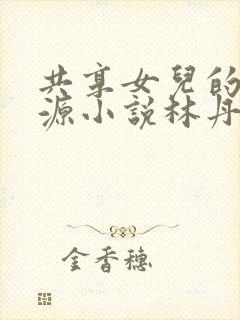 共享女兒的
源小説林丹
金香穗